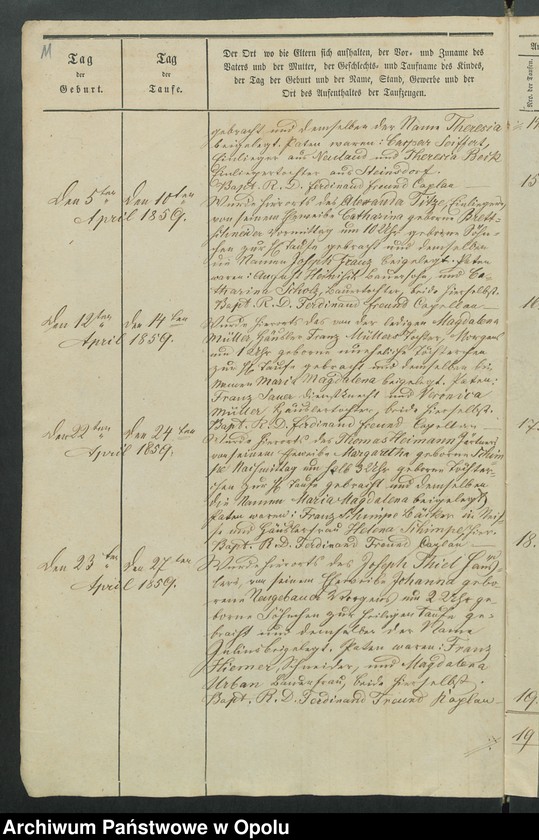 M
Tag
der
Geburt.
Tag
der
Taufe.
Der Ort wo die Eltern sich aufhalten, der Vor- und Zuname des
Vaters und der Mutter, der Geschlechts- und Taufname des Kindes,
der Tag der Geburt und der Name, Stand, Gewerbe und der
Ort des Aufenthaltes der Taufzeugen.
Nro. der Taufen.
gebracht und demselben der Name Theresia
beigelegt. Paten waren: Caspar Seiffert,
Einlieger aus Neuland und Theresia Bock
Einliegertochter aus Steinsdorf.
Bapt. R. D. Ferdinand Freund Caplan
15
Den 5ten Den 10ten
April 1859.
Wurde hierorts des Titze, Einliegers
von seinem Eheweibe Catharina geborne
Vormittag um 10 Uhr geborne Söhn-
chen zur Hl Taufe gebracht und demselben
die Namen Joseph Franz beigelegt. Paten
waren: August Bauersohn, und Ca-
tharina Scholz, Bauertochter, beide hierselbst.
Bapt. R. D. Ferdinand Freund Capellan
Den 12ten Den 14ten
April 1859.
Wurde hierorts das von der ledigen Magdalena
Müller, Häusler Franz Müllers Tochter, Morgens
um 1 Uhr geborne uneheliche Töchterchen
zur Hl. Taufe gebracht und demselben die
Namen Maria Magdalena beigelegt. Paten:
Franz Sauer Dienstknecht und Veronica
Müller Häuslertochter, beide hierselbst.
Bapt. R. D. Ferdinand Freund Capellan
17.
Den 22ten Den 24ten
April 1859.
Wurde hierorts des Thomas Heimann Gärtners
von seinem Eheweibe Margaretha geborne Schim-
pe Nachmittag um halb 3 Uhr geborne Töchter-
chen zur Hl Taufe gebracht und demselben
die Namen Maria Magdalena beigelegt
Paten waren: Franz Schimpe Bäcker in Neis-
se und Häuslerfrau Helena Schimpe hier.
Bapt. R. D. Ferdinand Freund Caplan
18.
Den 23ten Den 27ten
April 1859.
Wurde hierorts des Joseph Thiel Häus-
lers, von seinem Eheweibe Johanna gebo-
rene Neugebauer Morgens um 2 Uhr ge-
borne Söhnchen zur heiligen Taufe ge-
bracht und demselben der Name
Julius beigelegt. Paten waren: Franz
Hiemer, Schneider, und Magdalena
Urban Bauerfrau, beide hierselbst.
Bapt. R. D. Ferdinand Freund Kaplan
19.
19
Archiwum Państwowe w Opolu